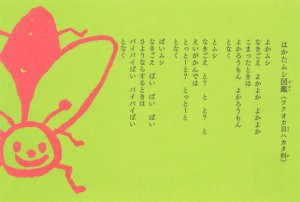 はかたムシ図鑑(フクオカ目ハカタ科)
よかムシ
なきごえ よかよか よかよか
こまったときは
よかろうもん よかろうもん
となく
とムシ
なきごえ と? と と?
えいがかんでは
とっとーと? とっとーと
となく
ばいムシ
なきごえ ばい ばい ばい
さようならするときは
バイバイばい バイバイばい
となく